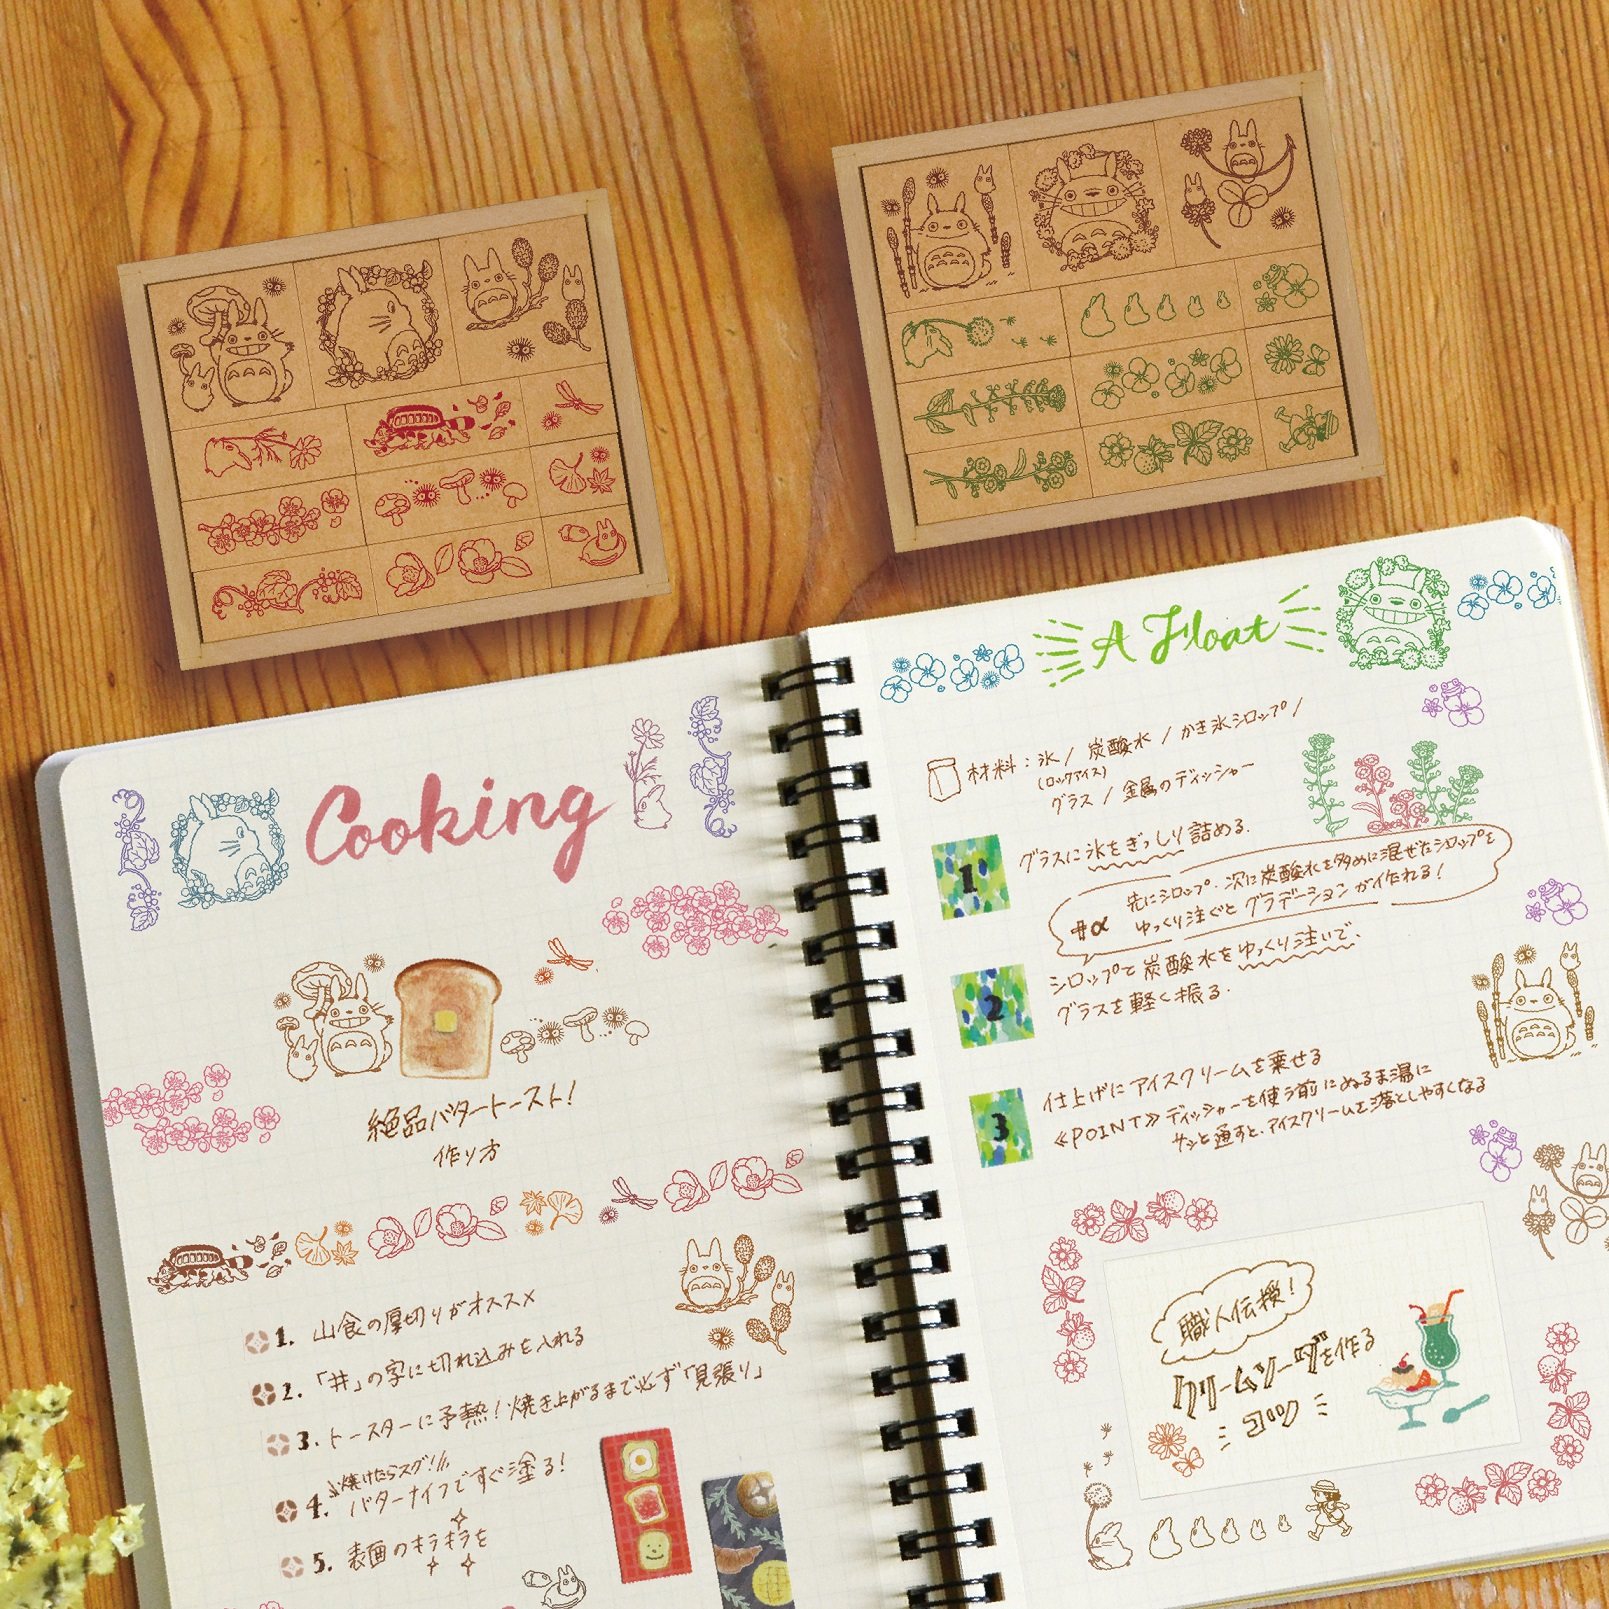 Cooking
絶品バタートースト!
作り方
1. 山食の厚切りがオススメ
2. 「井」の字に切れ込みを入れる
3. トースターに予熱!焼き上がるまで必ず「見張り」
焼けたらスグ!
4. バターナイフですぐ塗る!
5. 表面のキラキラを
A Float
材料:氷 / 炭酸水 / かき氷シロップ /
(ロックアイス)
グラス / 金属のディッシャー
1 グラスに氷をぎっしり詰める.
+α 先にシロップ、次に炭酸水を多めに混ぜたシロップを
ゆっくり注ぐとグラデーションが作れる!
2 シロップと炭酸水をゆっくり注いで、
グラスを軽く振る.
3 仕上げにアイスクリームを乗せる
≪POINT≫ ディッシャーを使う前にぬるま湯に
サッと通すと、アイスクリームを落としやすくなる
職人伝授!
クリームソーダを作る
コツ